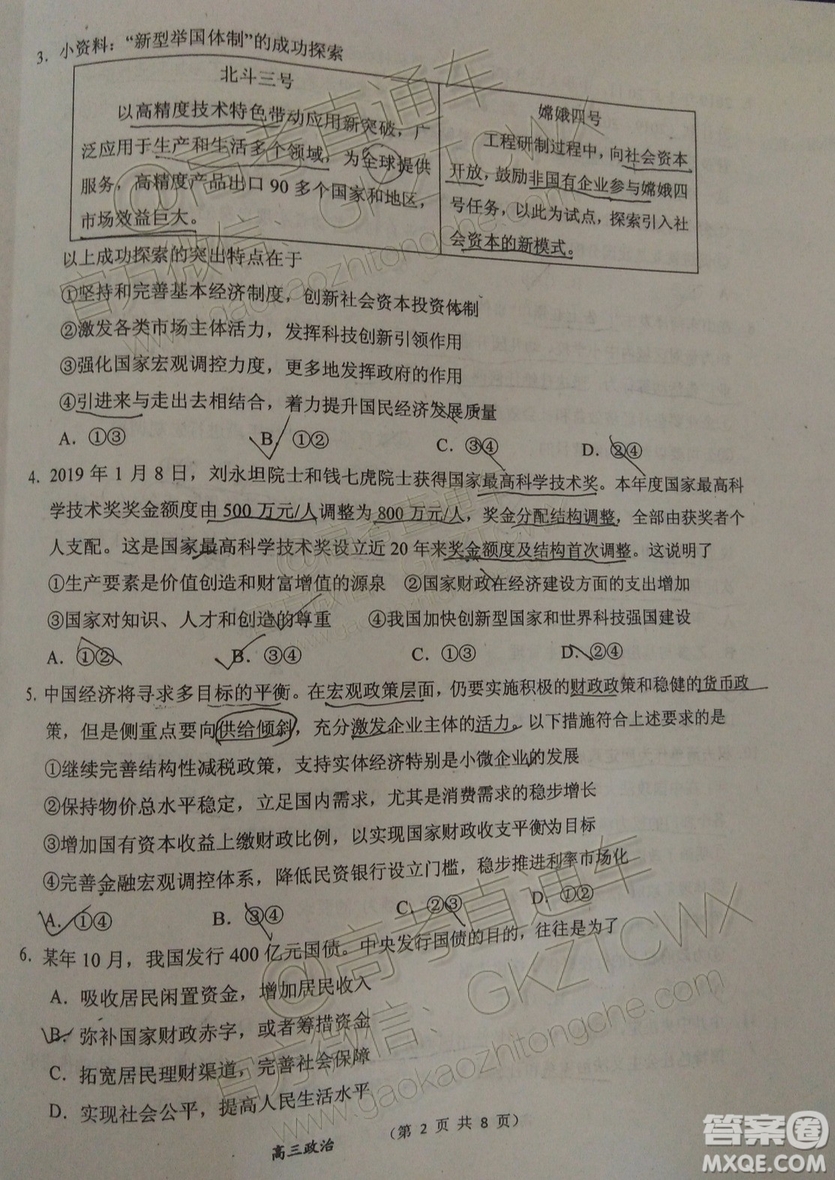 3. 小资料：“新型举国体制”的成功探索
北斗三号
以高精度技术特色带动应用新突破，广
泛应用于生产和生活多个领域，为全球提供
服务，高精度产品出口 90 多个国家和地区，
市场效益巨大。
嫦娥四号
工程研制过程中，向社会资本
开放，鼓励非国有企业参与嫦娥四
号任务，以此为试点，探索引入社
会资本的新模式。
以上成功探索的突出特点在于
①坚持和完善基本经济制度，创新社会资本投资体制
②激发各类市场主体活力，发挥科技创新引领作用
③强化国家宏观调控力度，更多地发挥政府的作用
④引进来与走出去相结合，着力提升国民经济发展质量
A．①③ B．①② C．③④ D．②④
4. 2019 年 1 月 8 日，刘永坦院士和钱七虎院士获得国家最高科学技术奖。本年度国家最高科
学技术奖奖金额度由 500 万元/人调整为 800 万元/人，奖金分配结构调整，全部由获奖者个
人支配。这是国家最高科学技术奖设立近 20 年来奖金额度及结构首次调整。这说明了
①生产要素是价值创造和财富增值的源泉 ②国家财政在经济建设方面的支出增加
③国家对知识、人才和创造的尊重 ④我国加快创新型国家和世界科技强国建设
A．①② B．③④ C．①③ D．②④
5. 中国经济将寻求多目标的平衡。在宏观政策层面，仍要实施积极的财政政策和稳健的货币政
策，但是侧重点要向供给倾斜，充分激发企业主体的活力。以下措施符合上述要求的是
①继续完善结构性减税政策，支持实体经济特别是小微企业的发展
②保持物价总水平稳定，扩大国内需求，尤其是消费需求的稳步增长
③增加国有资本收益上缴财政比例，以实现国家财政收支平衡为目标
④完善金融宏观调控体系，降低民资银行设立门槛，稳步推进利率市场化
A．①④ B．③④ C．②③ D．①②
6. 某年 10 月，我国发行 400 亿元国债。中央发行国债的目的，往往是为了
A．吸收居民闲置资金，增加居民收入
B．弥补国家财政赤字，或者筹措资金
C．拓宽居民理财渠道，完善社会保障
D．实现社会公平，提高人民生活水平
高三政治 （第 2 页 共 8 页）
@高考直通车
官方微信：GKZTCWX
www.gaokaozhitongche.com
@高考直通车
官方微信：GKZTCWX
www.gaokaozhitongche.com
答案圈
MXQE.COM